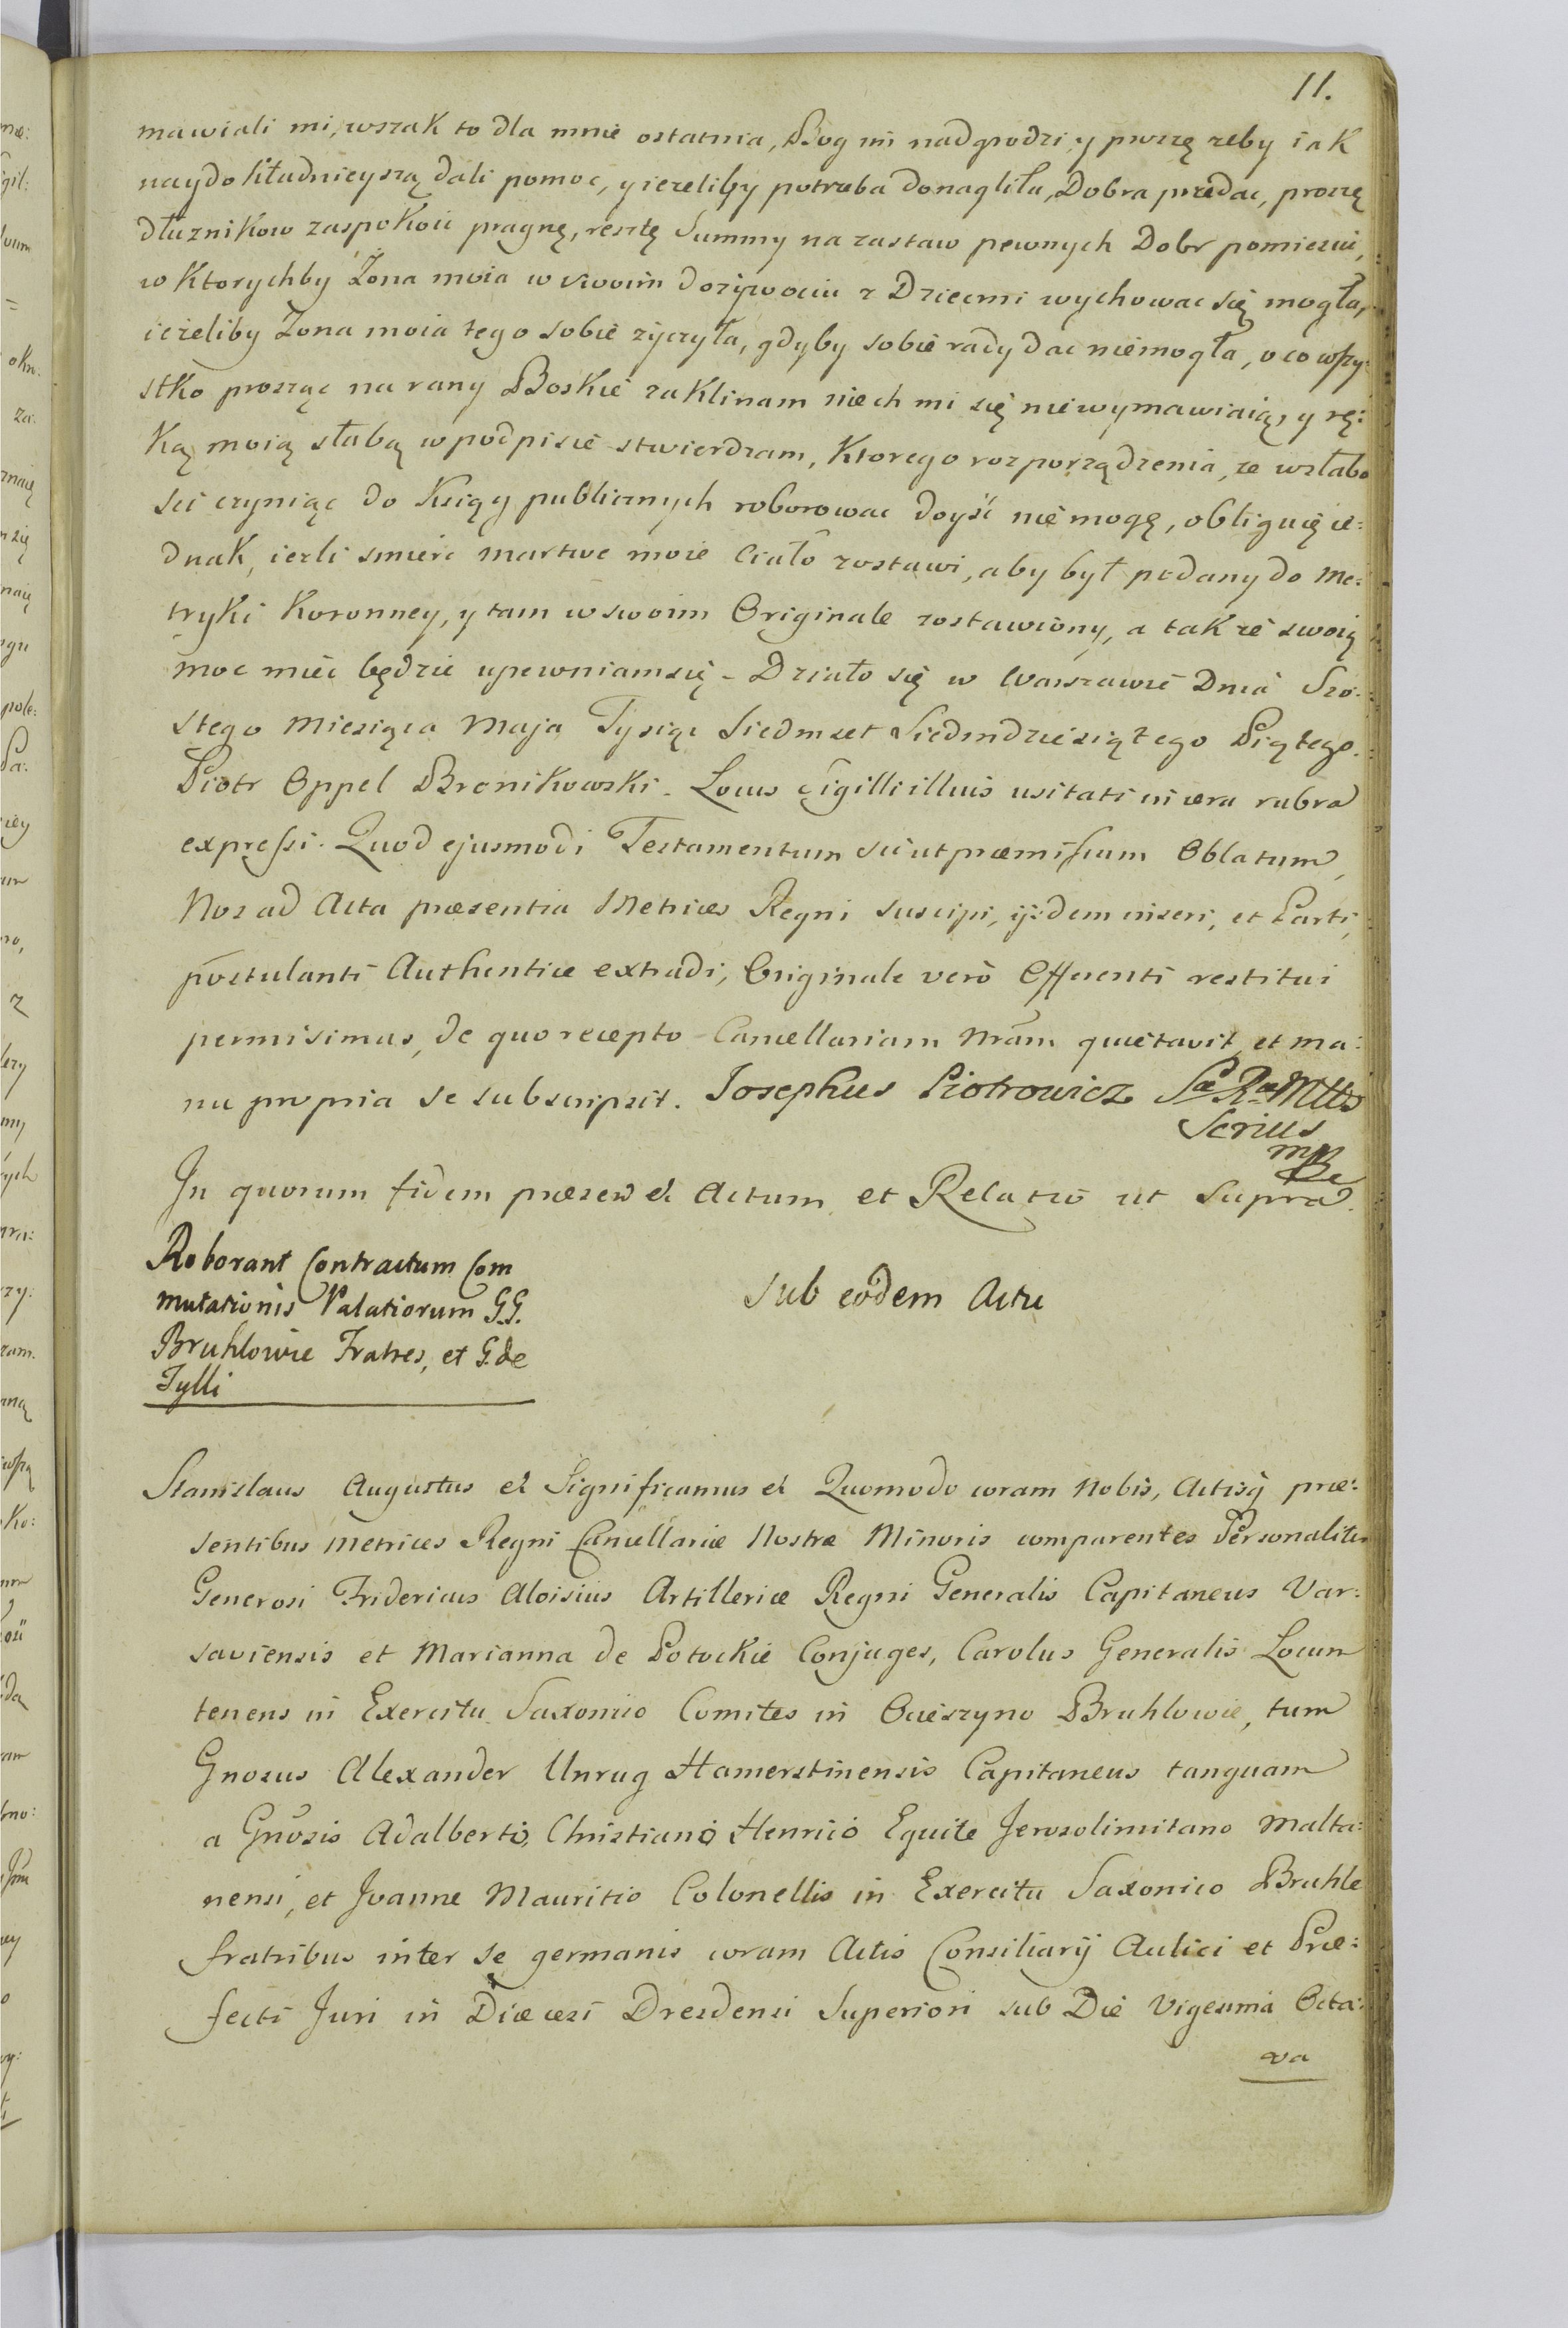 11.
mawiali mi, wszak to dla mnie ostatnia, Bog im nadgrodzi, y proszę zeby iak
naydokładnieyszą dali pomoc, y iezeliby potrzeba donagliła, Dobra przedac, proszę
dłuznikow zaspokoic pragnę, resztę Summy na zastaw pewnych Dobr pomiescic,
w ktorychby Zona moia w swoim dozywociu z Dziecmi wychowac się mogła,
iezeliby Zona moia tego sobie zyczyła, gdyby sobie rady dac niemogła, o co wszy:
stko prosząc na rany Boskie zaklinam niech mi się niewymawiaią, y rę:
ką moią słabą w podpisie stwierdzam, Ktorego rozporządzenia, ze w słabo
sci czyniąc do Xsiąg publicznych roborowac doyść nie mogę, obliguię ie:
dnak, iezli smierc martwe moie Ciało zostawi, aby był podany do Me:
tryki Koronney, y tam w swoim Originale zostawiony, a tak ze swoią
moc miec będzie upewniam się – Działo się w Warszawie Dnia Szo:
stego Miesiąca Maja Tysiąc Siedmset Siedmdziesiątego Piątego.
Piotr Oppel Bronikowski. Locus Sigilli illius usitati in cera rubra
expressi. Quod ejusmodi Testamentum sic ut præmissum Oblatum,
Nos ad Acta præsentia Metrices Regni suscipi, ijsdem inseri, et Parti,
postulanti Authentice extradi, Originale vero Offerenti restitui
permisimus, de quo recepto Cancellariam Nram quietavit, et ma:
nu propria se subscripsit. Josephus Piotrowicz S. R. Mttis
Scrius
mp
In quorum fidem præsen et Actum et Relatio ut supra.
Roborant Contractum Com
mutationis Palatiorum G.G.
Bruhlowie Fratres, et G. de
Tylli
Sub eodem Actu
Stanislaus Augustus et Significamus et Quomodo coram Nobis, Actisq præ:
sentibus Metrices Regni Cancellariæ Nostræ Minoris comparentes Personaliter
Generosi Fridericus Aloisius Artilleriæ Regni Generalis Capitaneus Var:
saviensis et Marianna de Potockie Conjuges, Carolus Generalis Locum
tenens in Exercitu Saxonico Comites in Ocieszyno Bruhlowie, tum
Gnosus Alexander Unrug Hamerstinensis Capitaneus tanquam
a Gnosis Adalberto, Christiano Henrico Equite Jerosolimitano Malta:
nensi, et Joanne Mauritio Colonellis in Exercitu Saxonico Bruhle
fratribus inter se germanis coram Actis Consiliarij Aulici et Præ:
fecti Juri in Diæcesi Dresdensi Superiori sub Die Vigesima Octa:
va